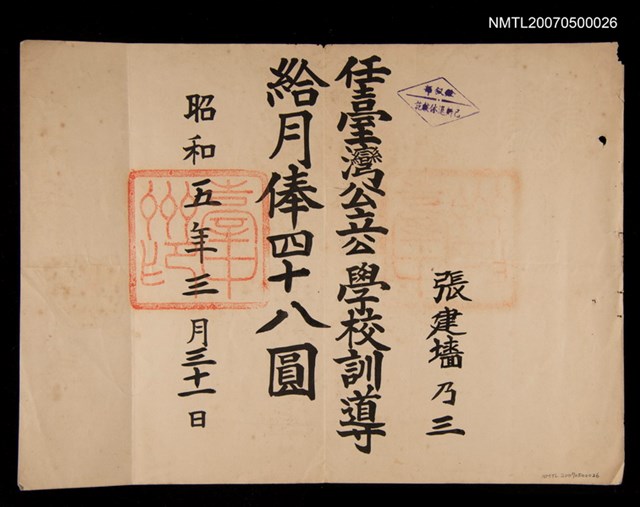 NMTL20070500026
張建墻乃三
任臺灣公立公學校訓導
給月俸四十八圓
昭和五年三月三十一日
臺中
州印